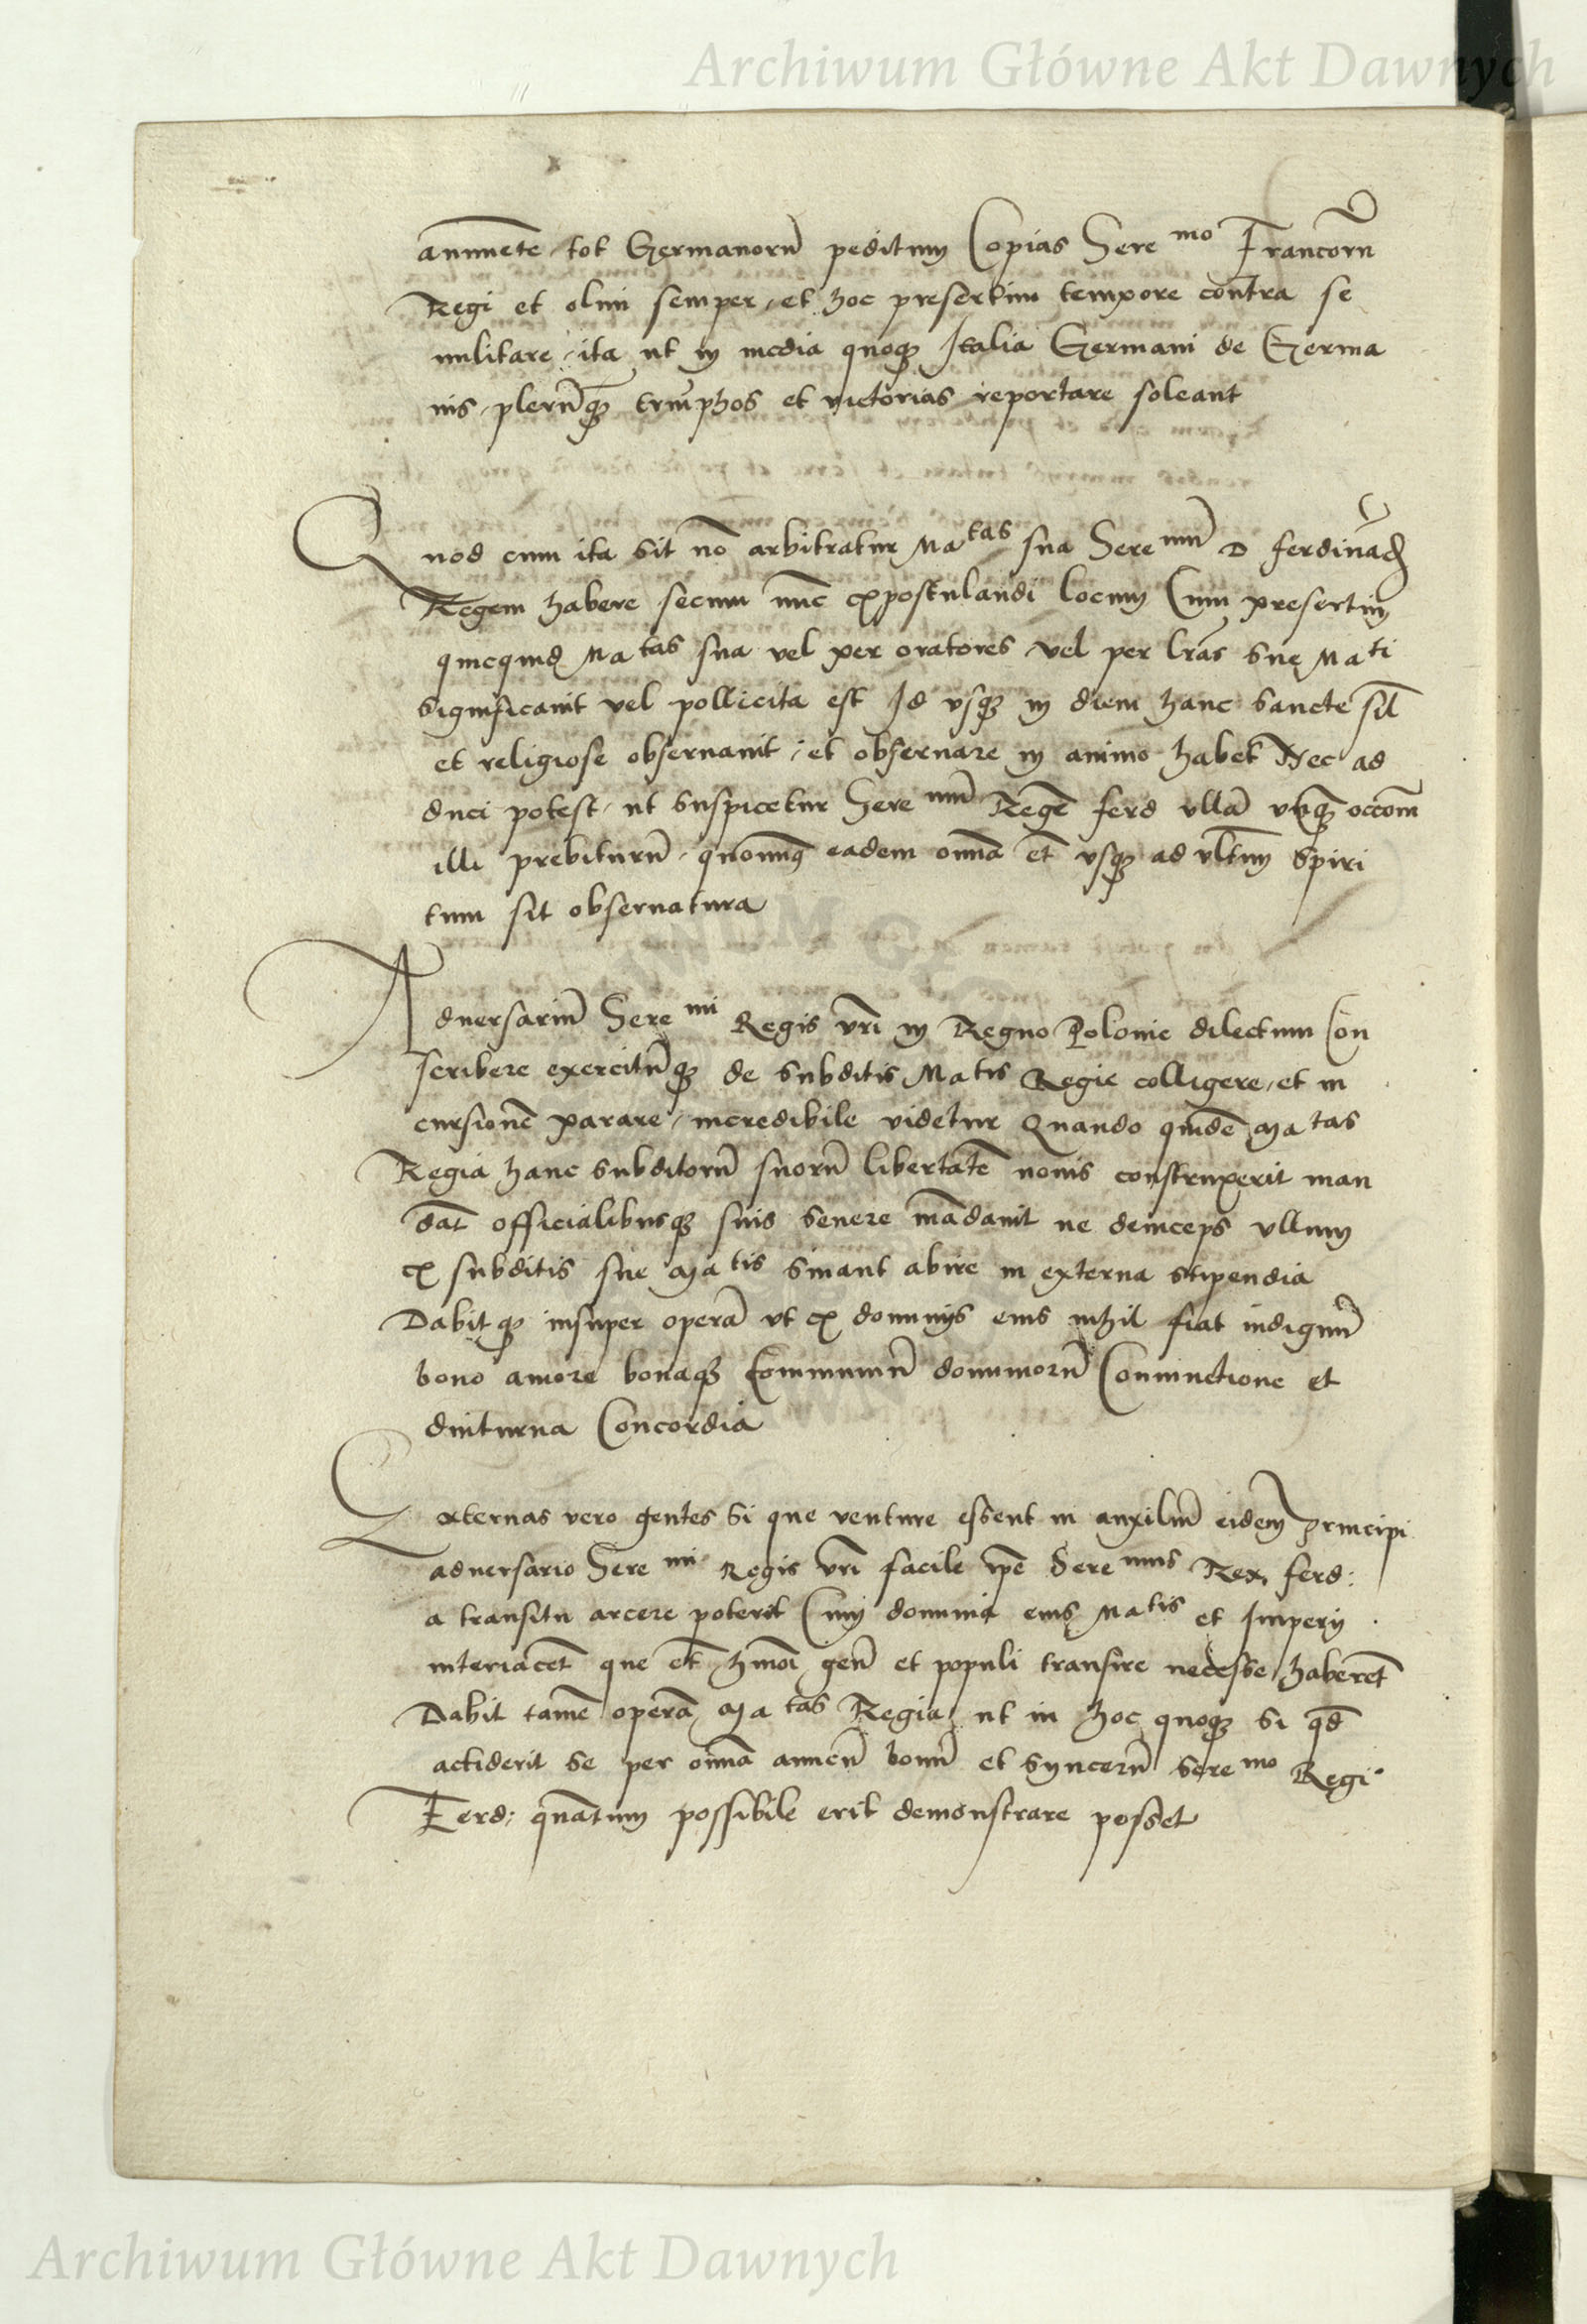 Archiwum Główne Akt Dawnych
annuēte tot Germanorū peditum Copias Sere mo Francorū
Regi et olim semper, et hoc presertim tempore contra se
militare, ita ut in media quoqȝ Italia Germani de Germa
nis plerūqȝ triūphos et victorias reportare soleant
Quod cum ita sit nō arbitratur Ma tas sua Sere mū D ferdinādū
Regem habere secum nūc expostulandi locum Cum presertim
quicquid Ma tas sua vel per oratores vel per lrās sue Ma ti
significavit vel pollicita est Id usqȝ in diem hanc sancte sil̄
et religiose observavit, et observare in animo habet Nec ad
duci potest, ut suspicetur Sere mū Regē ferd ullā ubqȝ occōm
illi prebiturū, quominus eadem omīa et̄ usqȝ ad ult̄um spiri
tum sit observatura
Adversariū Sere mi Regis vrī in Regno Polonie dilectum Con
scribere exercitūqȝ de subditis Ma tis Regie colligere, et in
cursionē parare, incredibile videtur Quando quidē Ma tas
Regia hanc subditorū suorū libertatē novis constrinxerit man
dat̄ officialibusqȝ suis severe mādavit ne deinceps ullum
ex subditis sue Ma tis sinant abire in externa stipendia
Dabitqȝ insuper operā ut ex dominijs eius nihil fiat indignū
bono amore bonaqȝ Communiū dominiorū Coniunctione et
diuturna Concordia
Externas vero gentes si que venture essent in auxiliū eidem Principi
adversario Sere mi Regis vrī facile ipē Sere mus Rex ferd:
a transitu arcere poterit Cum dominia eius Ma tis et Imperij
interiacēt que et̄ hmōi gen̄ et populi transire necesse haberēt
Dabit tamē operā Ma tas Regia ut in hoc quoqȝ si qd̄
acciderit se per omīa amicū bonū et syncerū Sere mo Regi
Ferd: quātum possibile erit demonstrare posset
Archiwum Główne Akt Dawnych